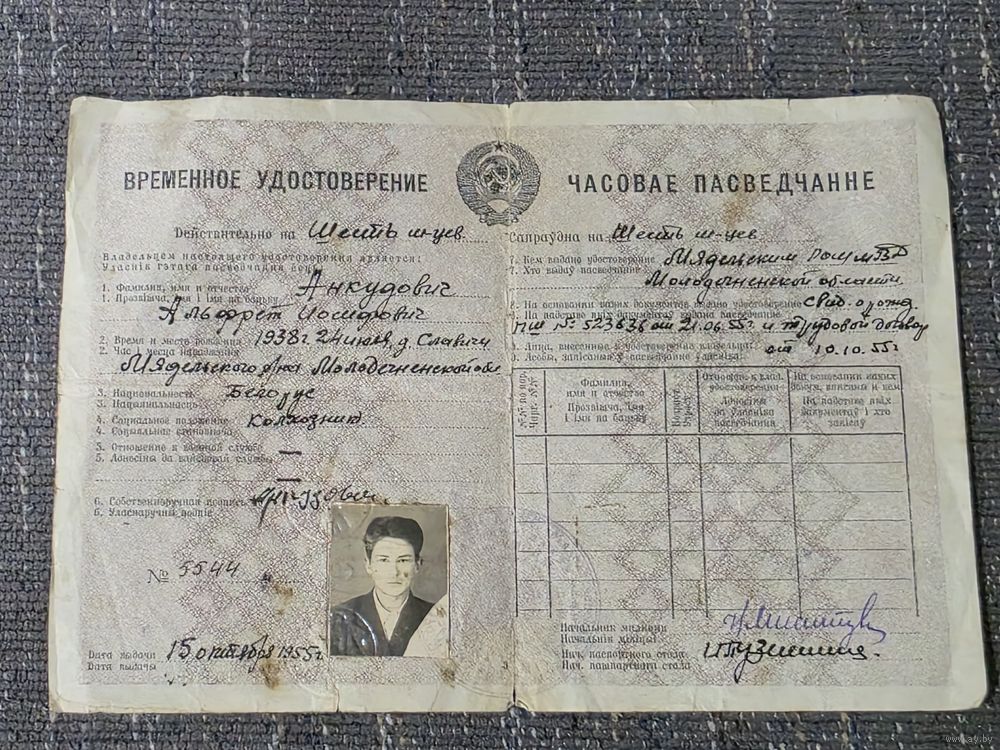 ВРЕМЕННОЕ УДОСТОВЕРЕНИЕ
Действительно на Шесть м-цев
Владельцем настоящего удостоверения является:
Уласнік гэтага пасведчання ёсць:
1. Фамилия, имя и отчество Анкудович
1. Прозвішча, імя і імя па бацьку
Альфрет Иосифович
2. Время и место рождения 1938 г. 24 июля, д. Славичи
2. Час і месца нараджэння
Мядельского р/на Молодечненской обл
3. Национальность Белорус
3. Нацыянальнасць
4. Социальное положение Колхозник
4. Сацыяльнае становішча
5. Отношение к военной службе —
5. Адносіны да вайсковай службы
—
6. Собственноручная подпись
6. Уласнаручны подпіс
№ 5544
Дата выдачи 15 октября 1955 г
Дата выдачы
ЧАСОВАЕ ПАСВЕДЧАННЕ
Сапраўдна на Шесть м-цев
7. Кем выдано удостоверение Мядельским РОМ МВД
7. Хто выдаў пасведчанне
Молодечненской области
8. На основании каких документов выдано удостоверение Свид. о рожд.
8. На падставе якіх дакументаў выдана пасведчанне
№ 523636 от 21.06.55 г. и трудовой договор
9. Лица, внесенные в удостоверение владельца
9. Асобы, запісаныя ў пасведчанне ўласніка:
от 10.10.55 г
№№ по пор.
Фамилия, имя и отчество
Прозвішча, імя і імя па бацьку
Возраст
Узрост
Отношение к влад. удостоверения
Адносіны да ўласніка пасведчання
На основании каких
На падставе якіх дакументаў і кто запісаў
Начальник милиции
Начальнік міліцыі
Нач. паспортного стола
Нач. пашпартнага стала
www.ay.by